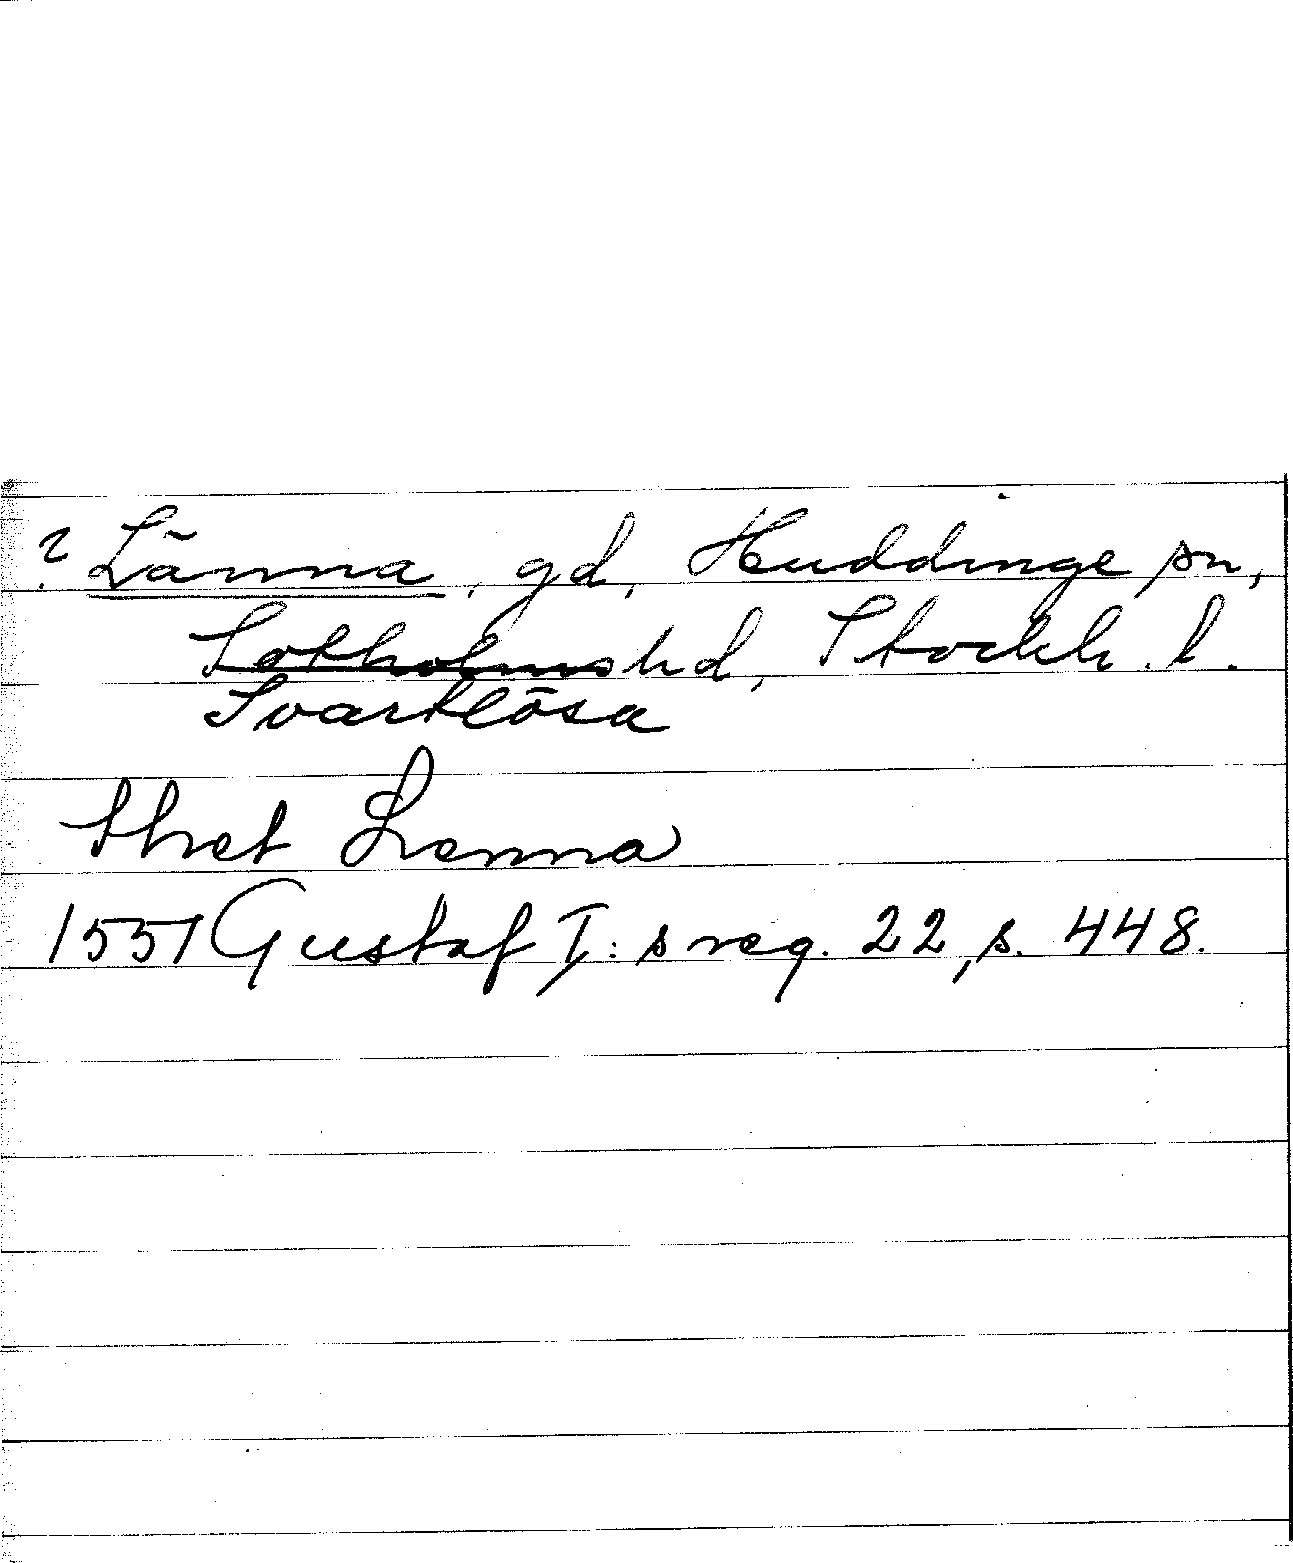 ? Länna, gd, Huddinge sn,
Sotholms hd, Stockh. l.
Svartlösa
thet Lenna
1551 Gustaf I:s reg. 22, s. 448.